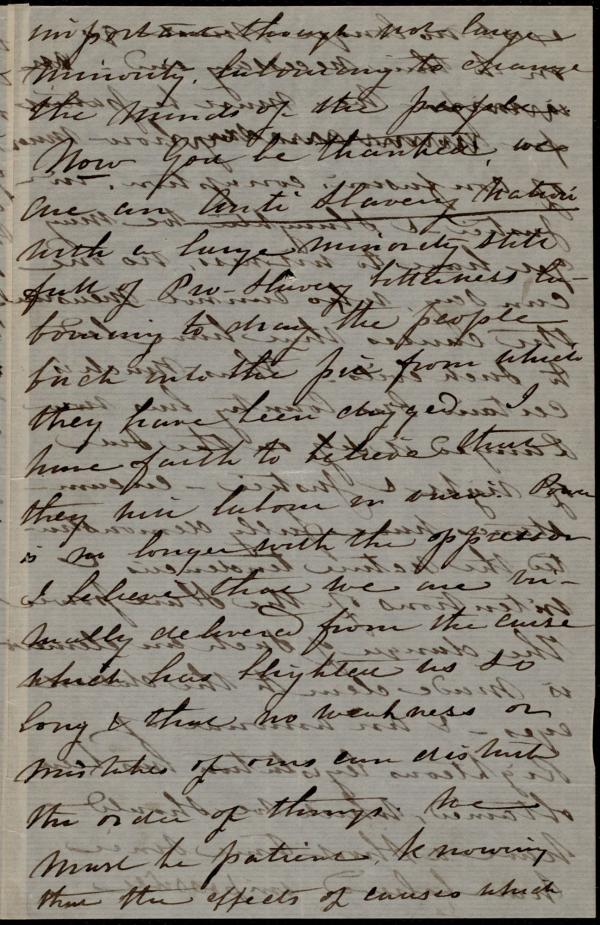 important though not large
minority, labouring to change
the minds of the people
Now you be thanked, we
are an Anti Slavery Nation
with a large minority still
full of Pro-Slavery bitterness la-
bouring to drag the people
back into the pit from which
they have been dragged. I
have faith to believe that
they will labour in vain. Power
is no longer with the oppressor
I believe that we are vir-
tually delivered from the curse
which has blighted us so
long & that no weakness or
mistakes of ours can disturb
the order of things. We
must be patient knowing
that the effects of causes which